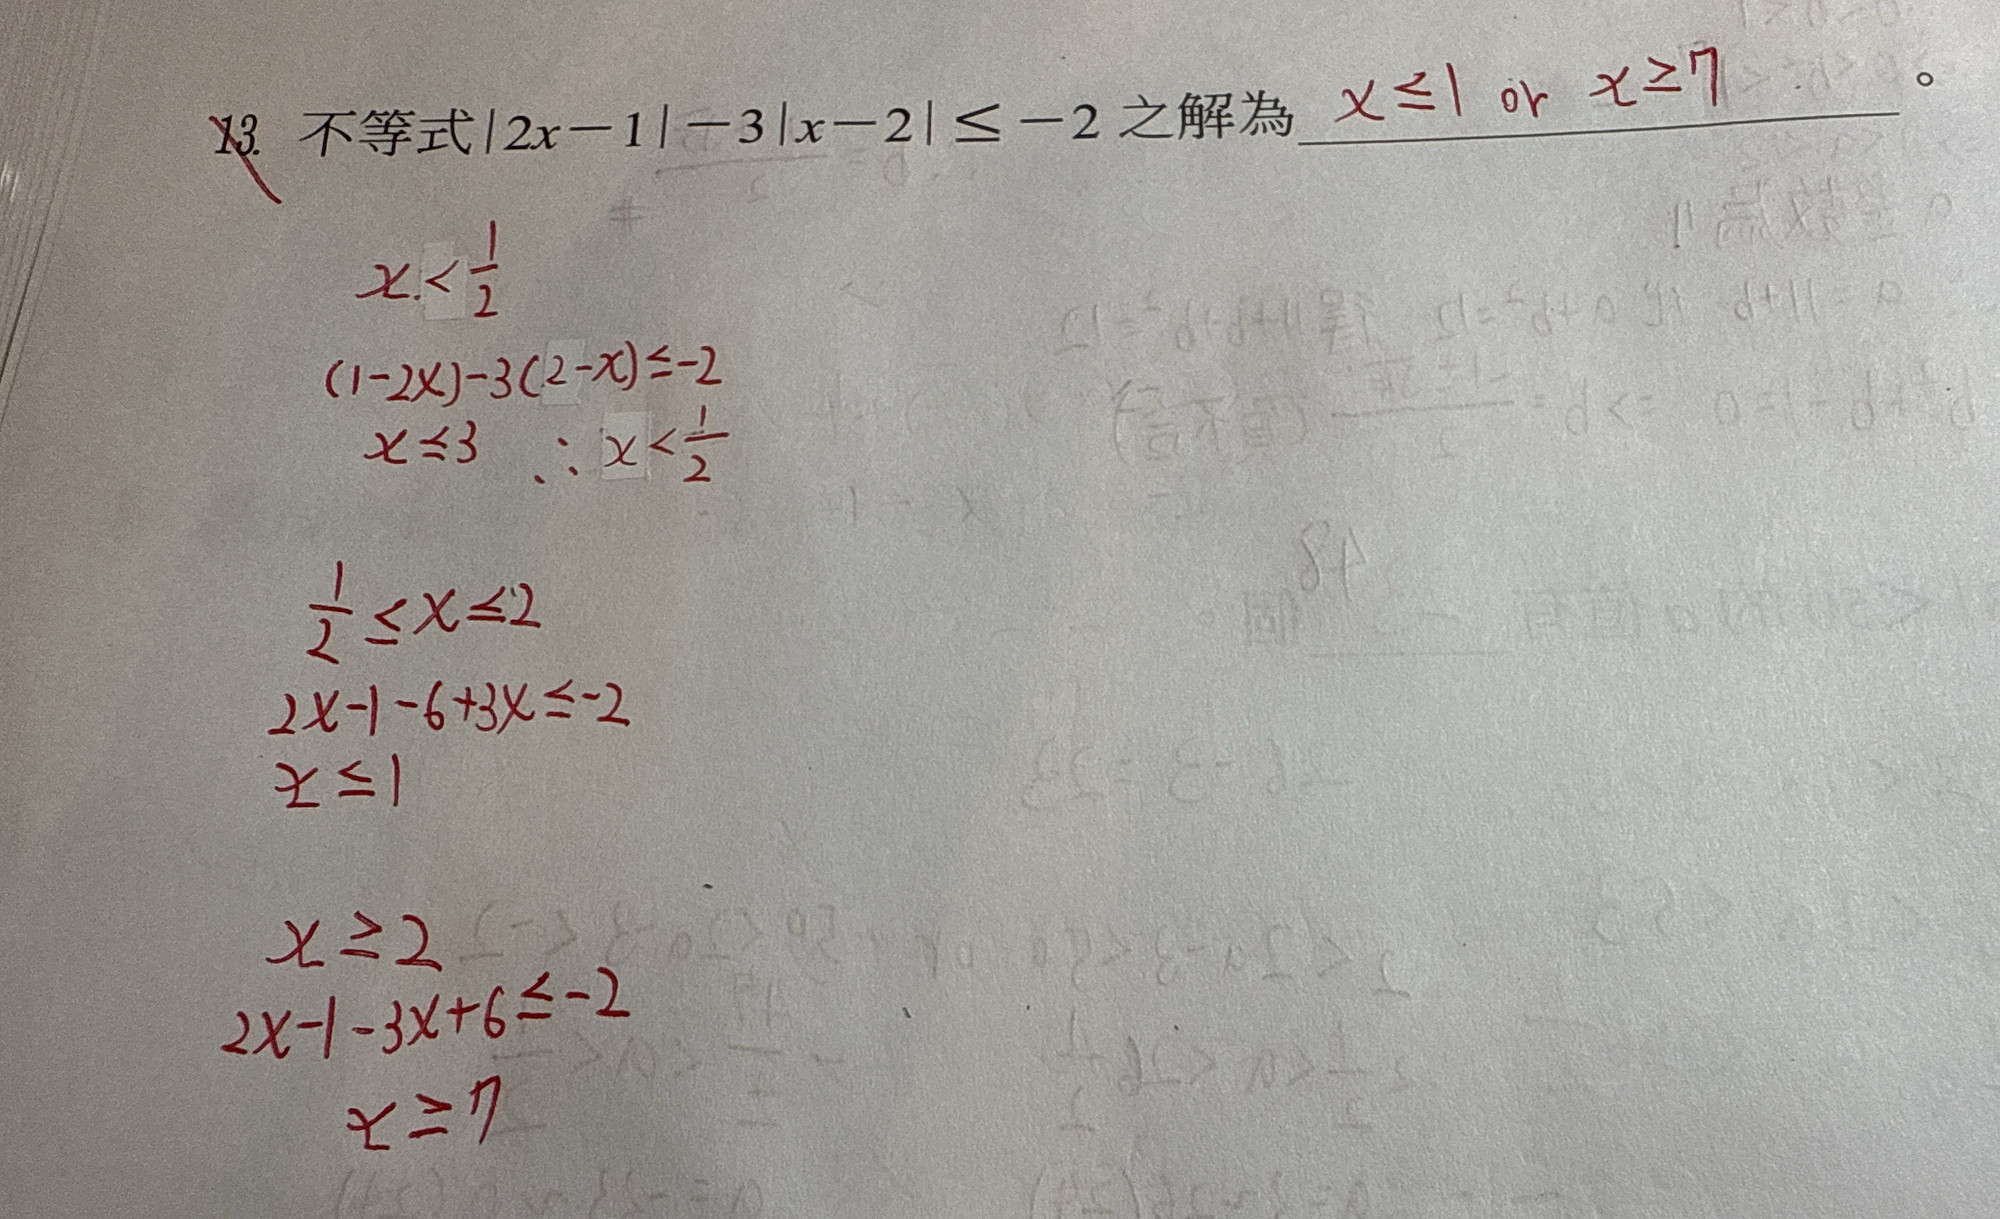 13. 不等式|2x－1|－3|x－2|≤－2之解為 x≤1 or x≥7 。
x<1/2
(1-2x)-3(2-x)≤-2
x≤3 ∴x<1/2
1/2≤x≤2
2x-1-6+3x≤-2
x≤1
x≥2
2x-1-3x+6≤-2
x≥7